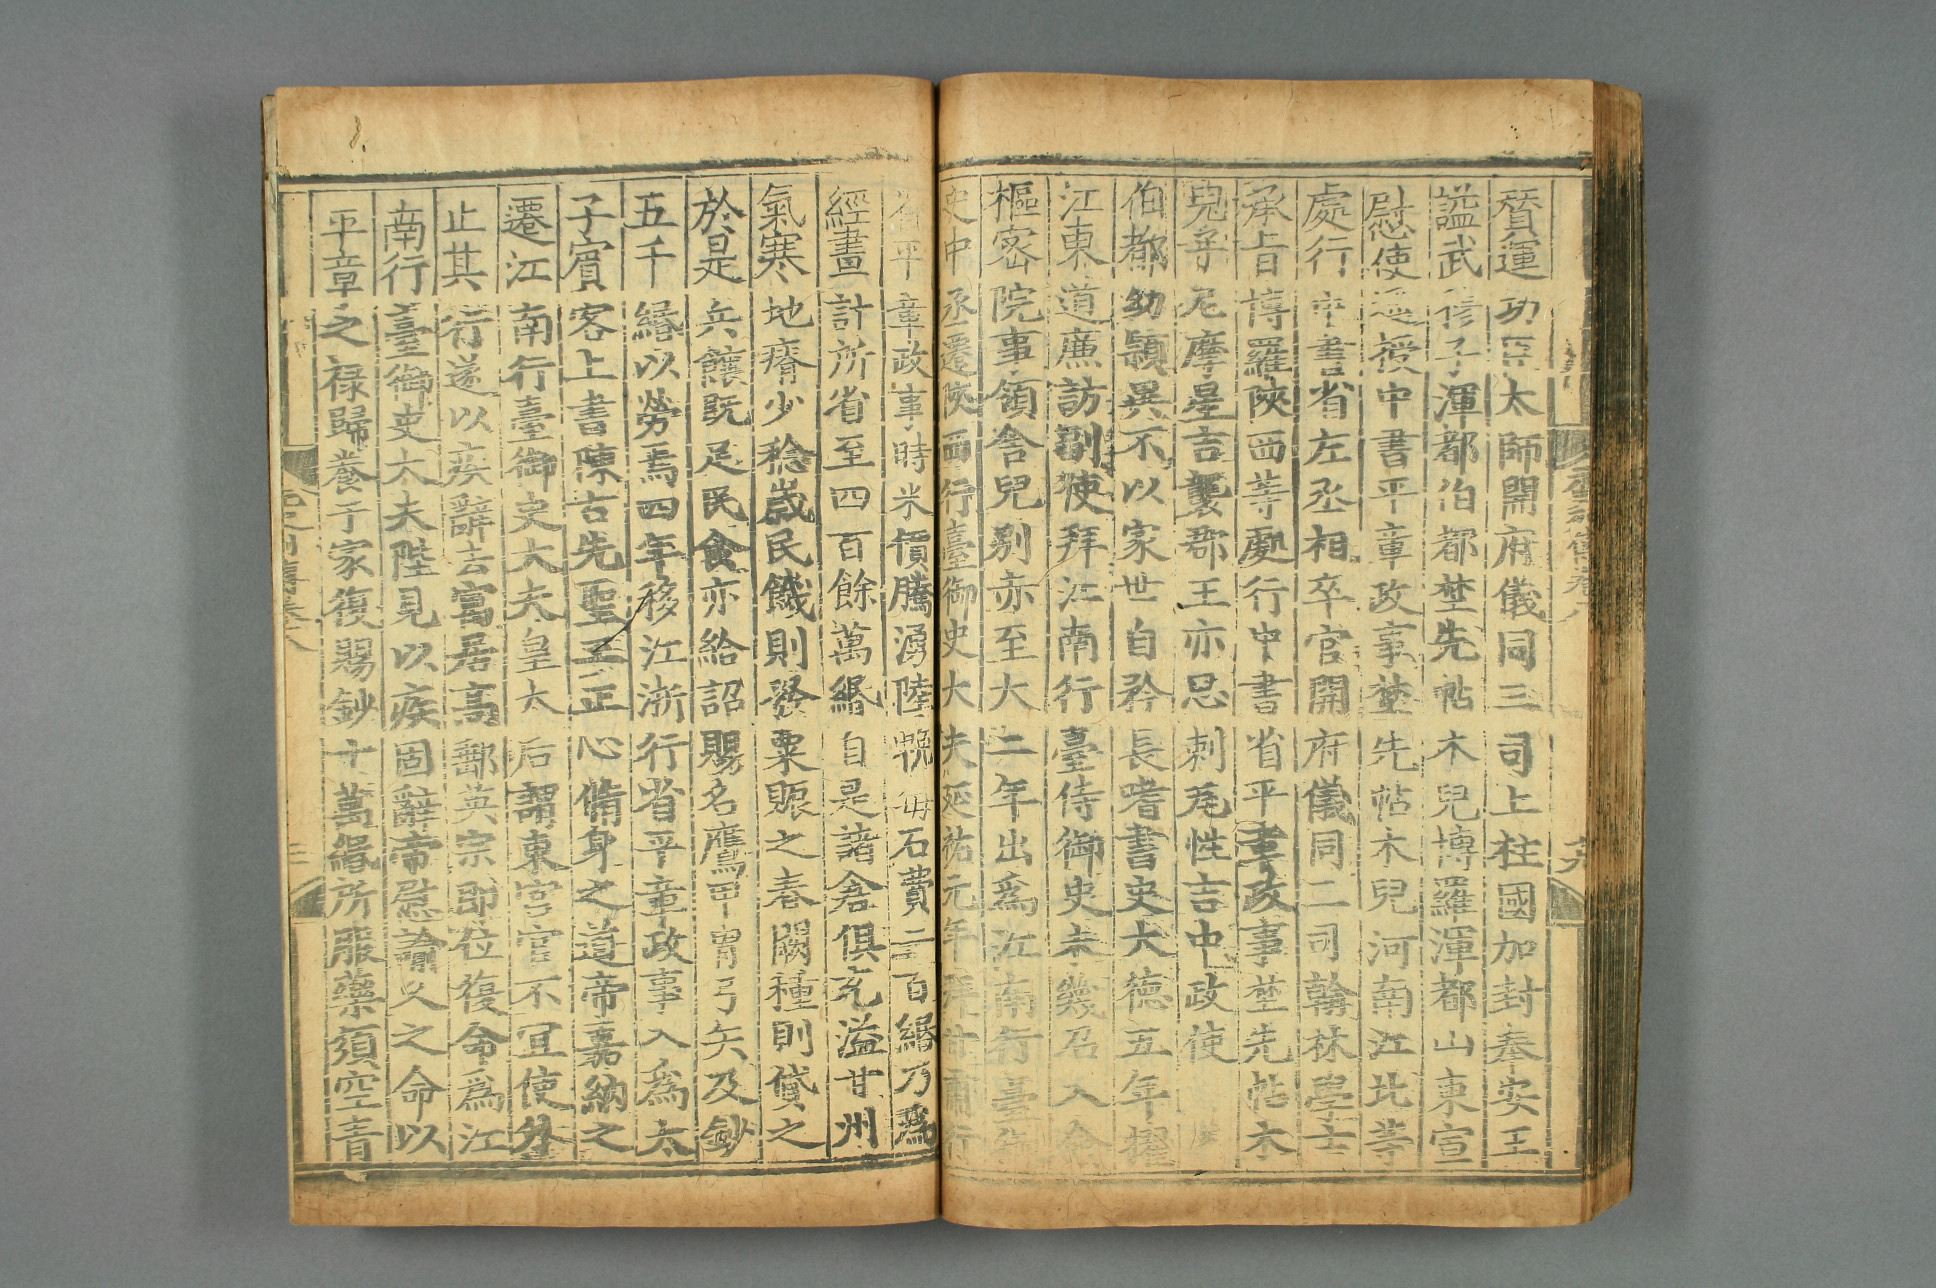 贊運功臣太師開府儀同三司上柱國加封奉安王
謚武修子渾都伯都埜先帖木兒博羅渾都山東宣
慰使遥授中書平章政事埜先帖木兒河南江北等
處行中書省左丞相卒官開府儀同三司翰林學士
承旨博羅陝西等處行中書省平章政事埜先帖木
兒子尼摩星吉襲郡王亦思剌瓦性吉中政使
伯都幼頴異不以家世自矜長嗜書史大德五年擢
江東道亷訪副使拜江南行臺侍御史未幾召入僉
樞密院事領舍兒别赤至大二年出爲江南行臺御
史中丞遷陝西行臺御史大夫延祐元年拜甘肅行
省平章政事時米價騰湧陸輓每石費二百緡乃爲
經畫計所省至四百餘萬緡自是諸倉俱充溢甘州
氣寒地瘠少稔歲民饑則發粟賑之春闕種則貸之
於是兵饟既足民食亦給詔賜名鷹甲冑弓矢及鈔
五千緡以勞焉四年移江浙行省平章政事入爲太
子賓客上書陳古先聖王正心脩身之道帝嘉納之
遷江南行臺御史大夫皇太后謂東宮官不宜使外
止其行遂以疾辭去寓居高郵英宗即位復命爲江
南行臺御史大夫陛見以疾固辭帝慰諭久之命以
平章之禄歸養于家復賜鈔十萬緡所服藥須空青
元史列傳卷八
三